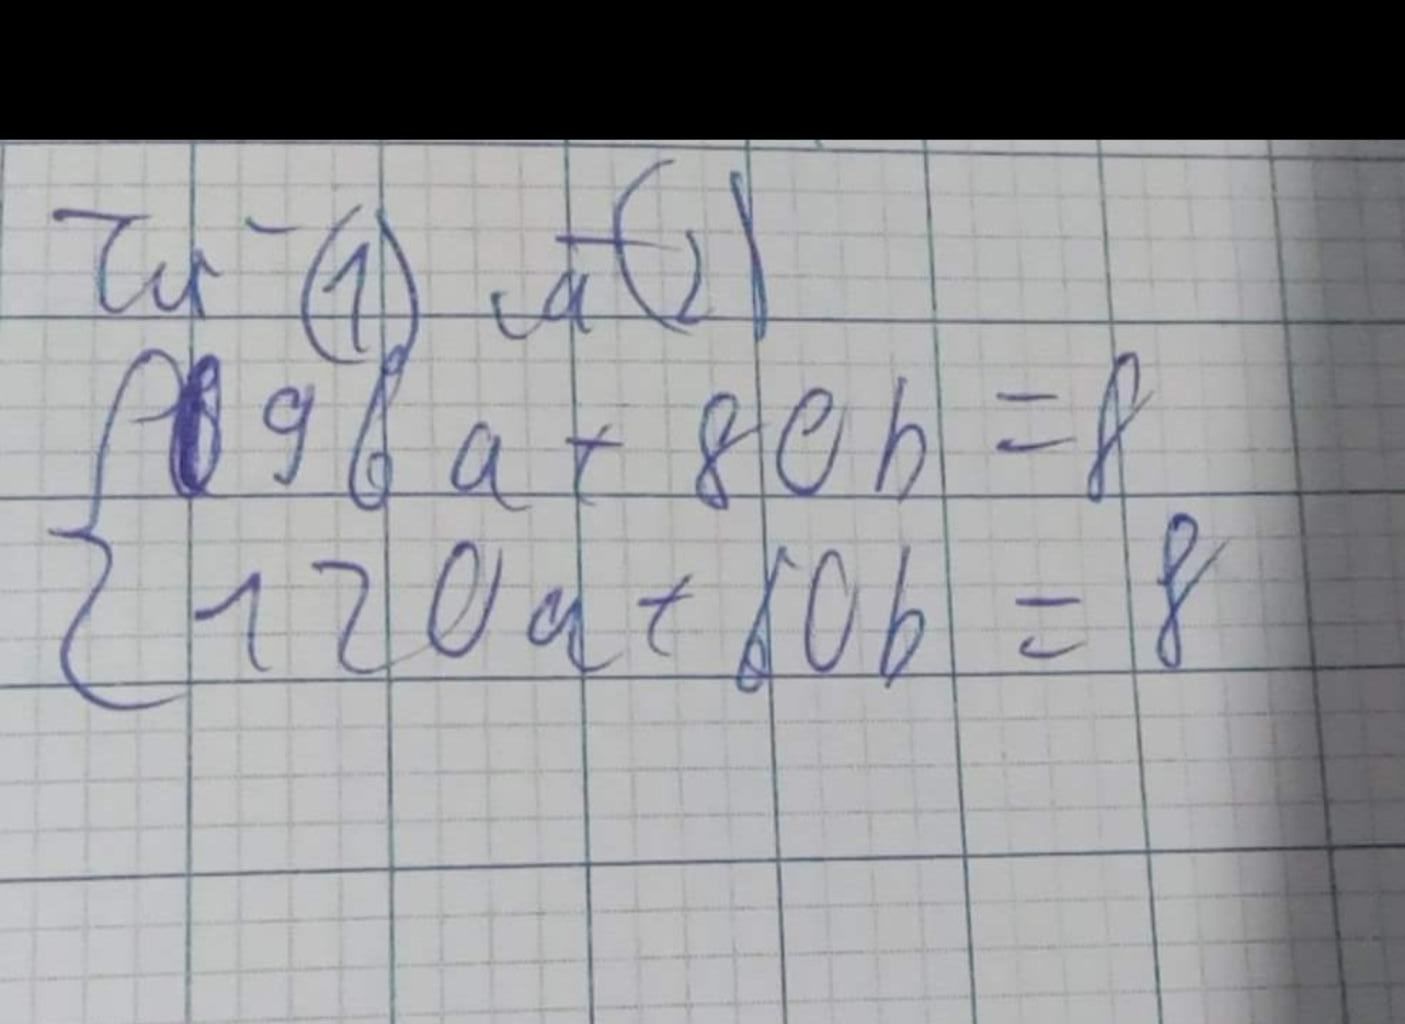 Từ (1) và (2)
96a + 80b = 8
120a + 60b = 8